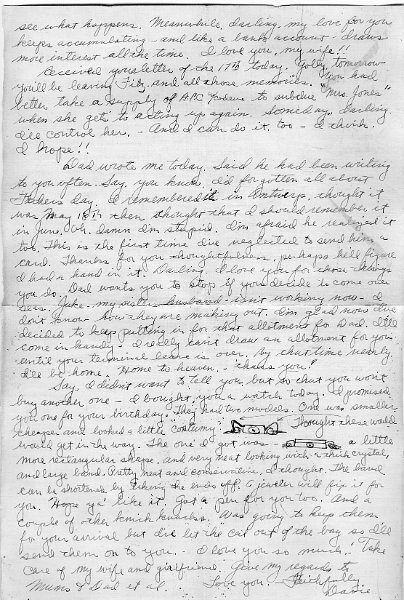 see what happens. Meanwhile, darling, my love for you
keeps accumulating - and like a bank account - draws
more interest all the time. I love you, my wife!!
Received your letter of the 17th today. Golly, tomorrow
you'll be leaving Fitz. and all those memories. You had
better take a supply of APC to subdue "Mrs. Jones"
when she gets to acting up again. Someday, darling
I'll control her. - And I can do it, too - I think.
I hope!!
Dad wrote me today. Said he had been writing
to you often. Say, you know, I'd forgotten all about
Fathers day. I remembered it in Antwerp, thought it
was May 18th then thought that I should remember it
in June. Oh, damn I'm stupid. I'm afraid he realized it
too. This is the first time I've neglected to send him a
card. Thanks for your thoughtfulness. perhaps he'll figure
I had a hand in it. Darling, I love you for those things
you do. Dad wants you to stop if you decide to come over
Jake, my sister's husband isn't working now - I
don't know how they are making out. I'm glad now I've
decided to keep putting in for that allotment for Dad. It'll
come in handy. I really can't draw an allotment for you
until your terminal leave is over. By that time
I'll be home. Home to heaven. - thass you!
Say, I didn't want to tell you but so that you won't
buy another one - I bought you a watch today. I promised
you one for your birthday. They had two models. One was smaller
cheaper and looked a little Thought these would
would get in the way. The one I got was a little
more rectangular shape, and very neat looking with a thick crystal,
and large band. Pretty neat and conservative, I thought. The band
can be shortened by taking the ends off. A jeweler will fix it for
you. Hope ya like it. Got a pen for you too. And a
couple of other knick knacks. Was going to keep them
for your arrival but I've let the cat out of the bag so I'll
send them on to you. - I love you so much! Take
care of my wife and girlfriend. Give my regards to
Mums & Dad et al. . . Love you. Faithfully,
Davie